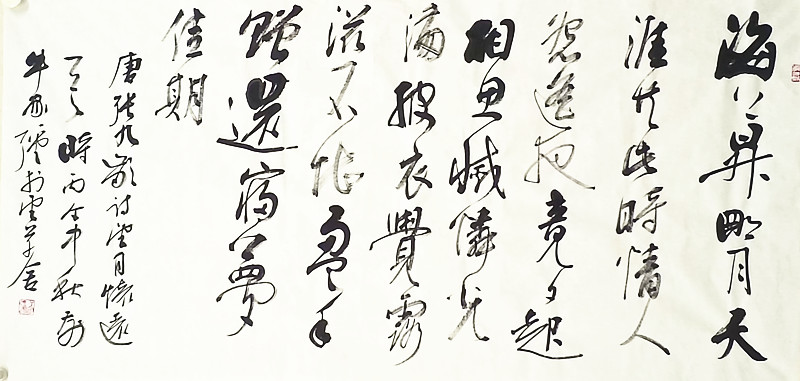 海上昇明月天
涯共此時情人
怨遙夜竟夕起
相思滅憐光
滿披衣覺露
滋不堪盈手
贈還寢夢
佳期
唐張九齡詩望月懷遠
時丙中秋
於雲草舍